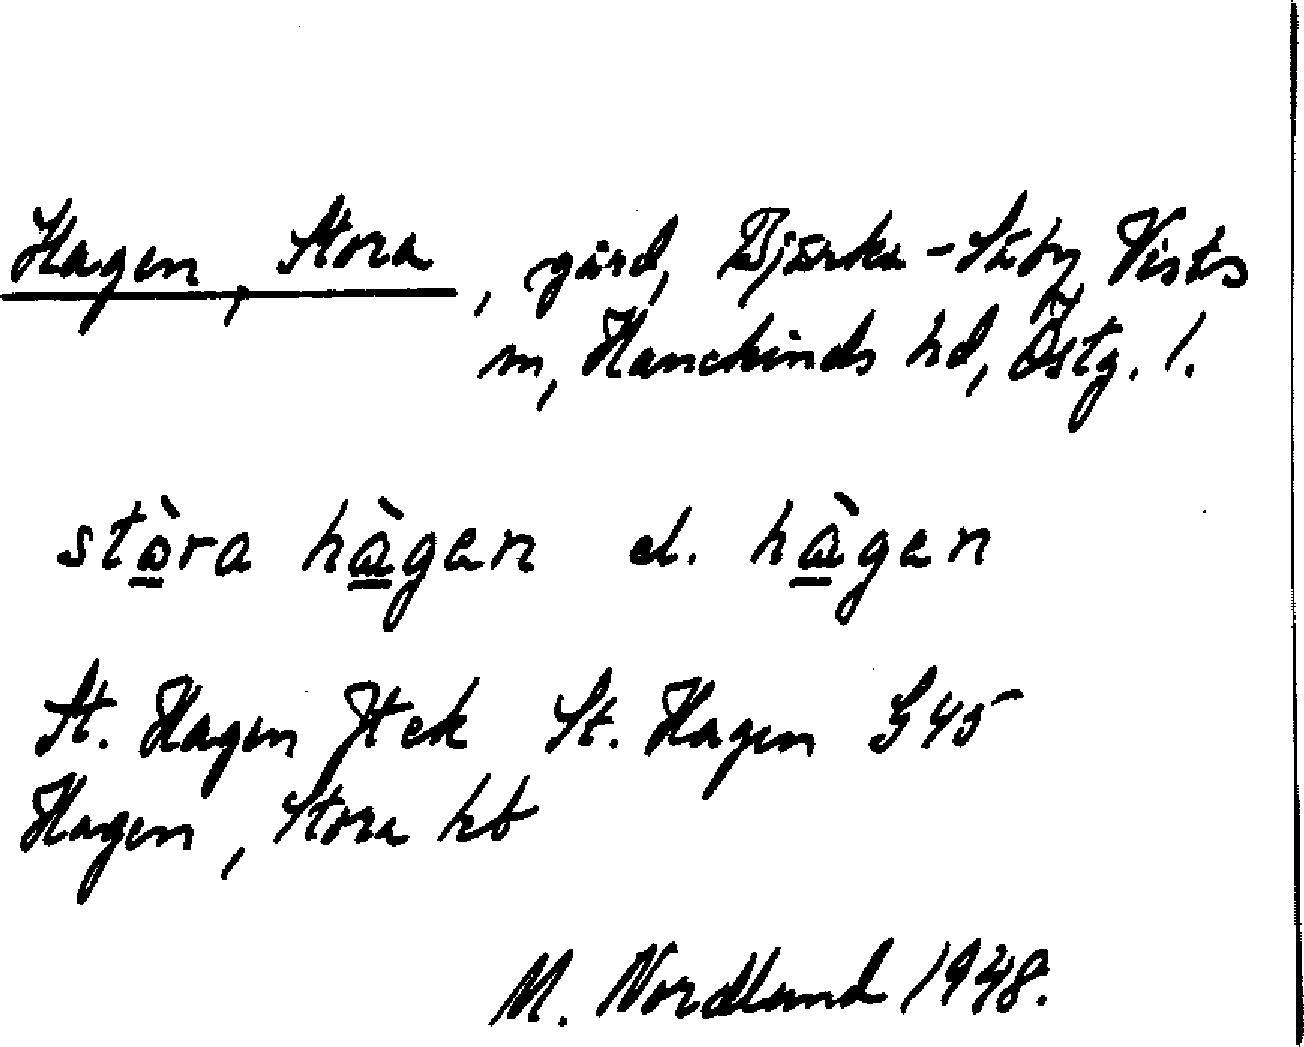 Hagen, Stora, gård, Bjärka-Säby, Vists
sn, Hanekinds hd, Östg. l.
stòra hàgen el. hàgen
St. Hagen Jtek St. Hagen G45
Hagen, Stora hb
M. Nordlund 1948.